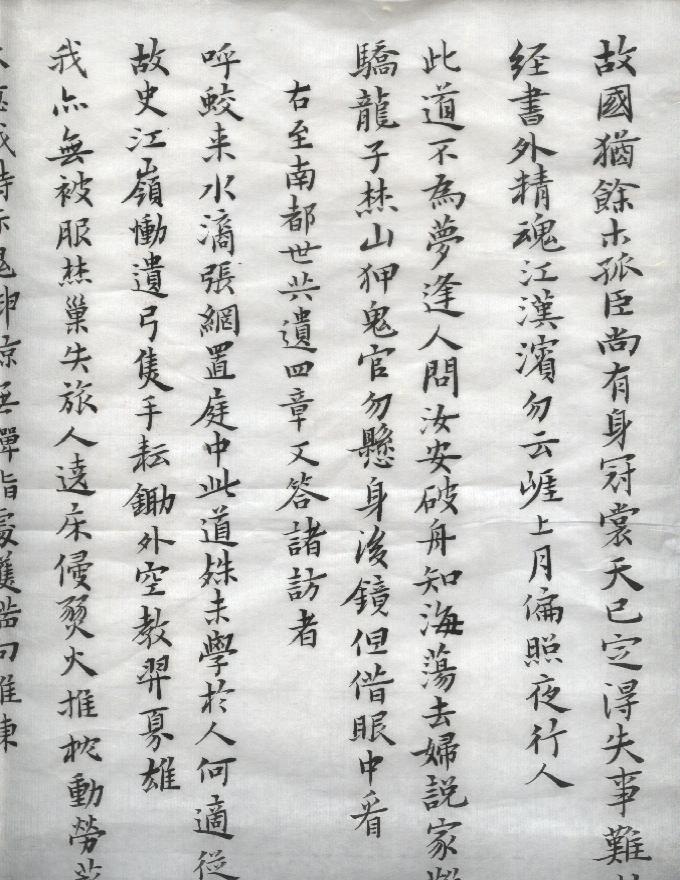 故國猶餘木孤臣尚有身冠裳天已定得失事難
経書外精魂江漢濱勿云崕上月偏照夜行人
此道不為夢逢人問汝安破舟知海蕩去婦説家
驕龍子焚山狎鬼官勿懸身後鏡但借眼中看
右至南都世共遺四章又答諸訪者
呼蛟来水滴張網置庭中此道姝未學於人何適従
故史江嶺慟遺弓隻手耘鋤外空教羿寡雄
我亦無被服焚巢失旅人遶床傻爂火推枕動勞